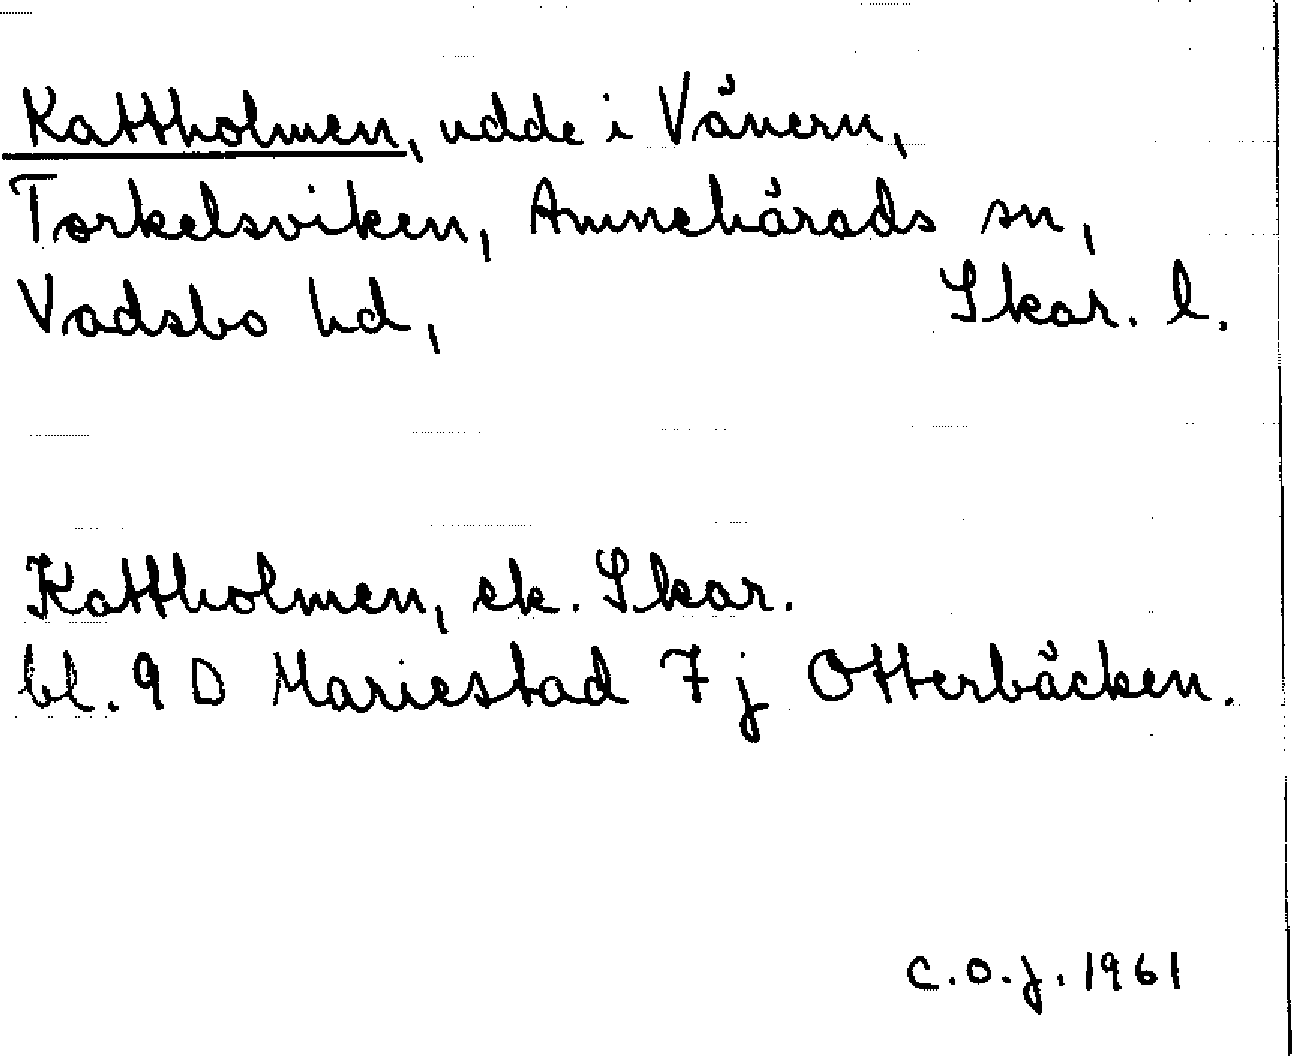 Kattholmen, udde i Vänern,
Torkelsviken, Amnehärads sn,
Vadsbo hd, Skar. l.
Kattholmen, ek. Skar.
bl. 9 D Mariestad 7 j Otterbäcken.
C.O.J. 1961